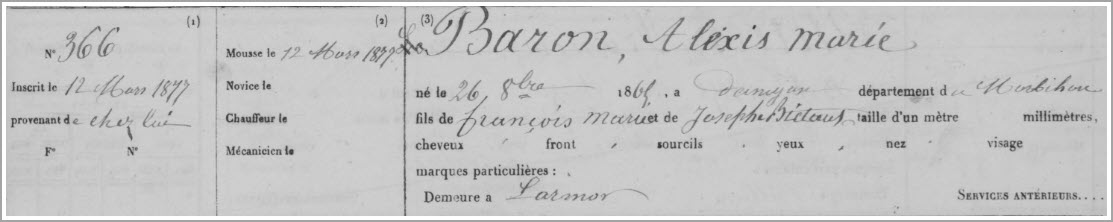 (1)
N° 366
Inscrit le 12 Mars 1877
provenant de chez lui
F° N°
(2)
Mousse le 12 Mars 1877
Novice le
Chauffeur le
Mécanicien le
(3)
Le Baron, Alexis Marie
né le 26 8bre 1865, a département du Morbihan
fils de françois Marie et de Josephe taille d'un mètre millimètres,
cheveux , front , sourcils , yeux , nez visage
marques particulières :
Demeure a Larmor
SERVICES ANTÉRIEURS....